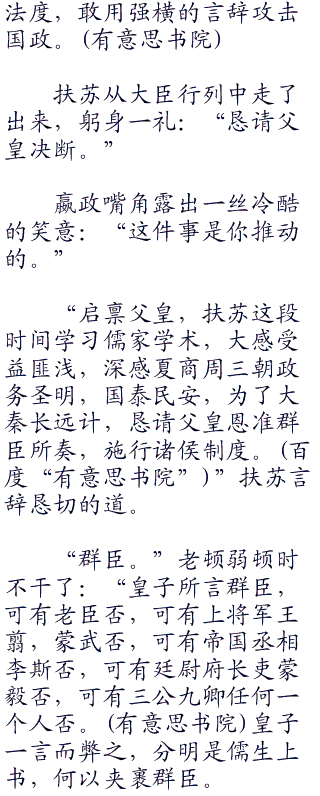 法度，敢用强横的言辞攻击
国政。(有意思书院)
扶苏从大臣行列中走了
出来，躬身一礼：“恳请父
皇决断。”
嬴政嘴角露出一丝冷酷
的笑意：“这件事是你推动
的。”
“启禀父皇，扶苏这段
时间学习儒家学术，大感受
益匪浅，深感夏商周三朝政
务圣明，国泰民安，为了大
秦长远计，恳请父皇恩准群
臣所奏，施行诸侯制度。(百
度“有意思书院”)”扶苏言
辞恳切的道。
“群臣。”老顿弱顿时
不干了：“皇子所言群臣，
可有老臣否，可有上将军王
翦，蒙武否，可有帝国丞相
李斯否，可有廷尉府长吏蒙
毅否，可有三公九卿任何一
个人否。(有意思书院)皇子
一言而弊之，分明是儒生上
书，何以夹裹群臣。